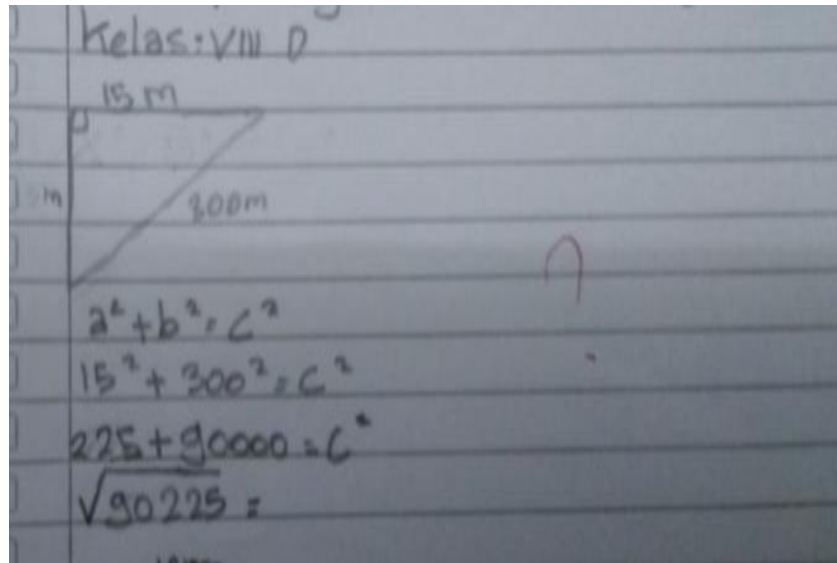 Kelas: VIII D
15 m
m
300m
a² + b² = c²
15² + 300² = c²
225 + 90000 = c²
√90225 =
?